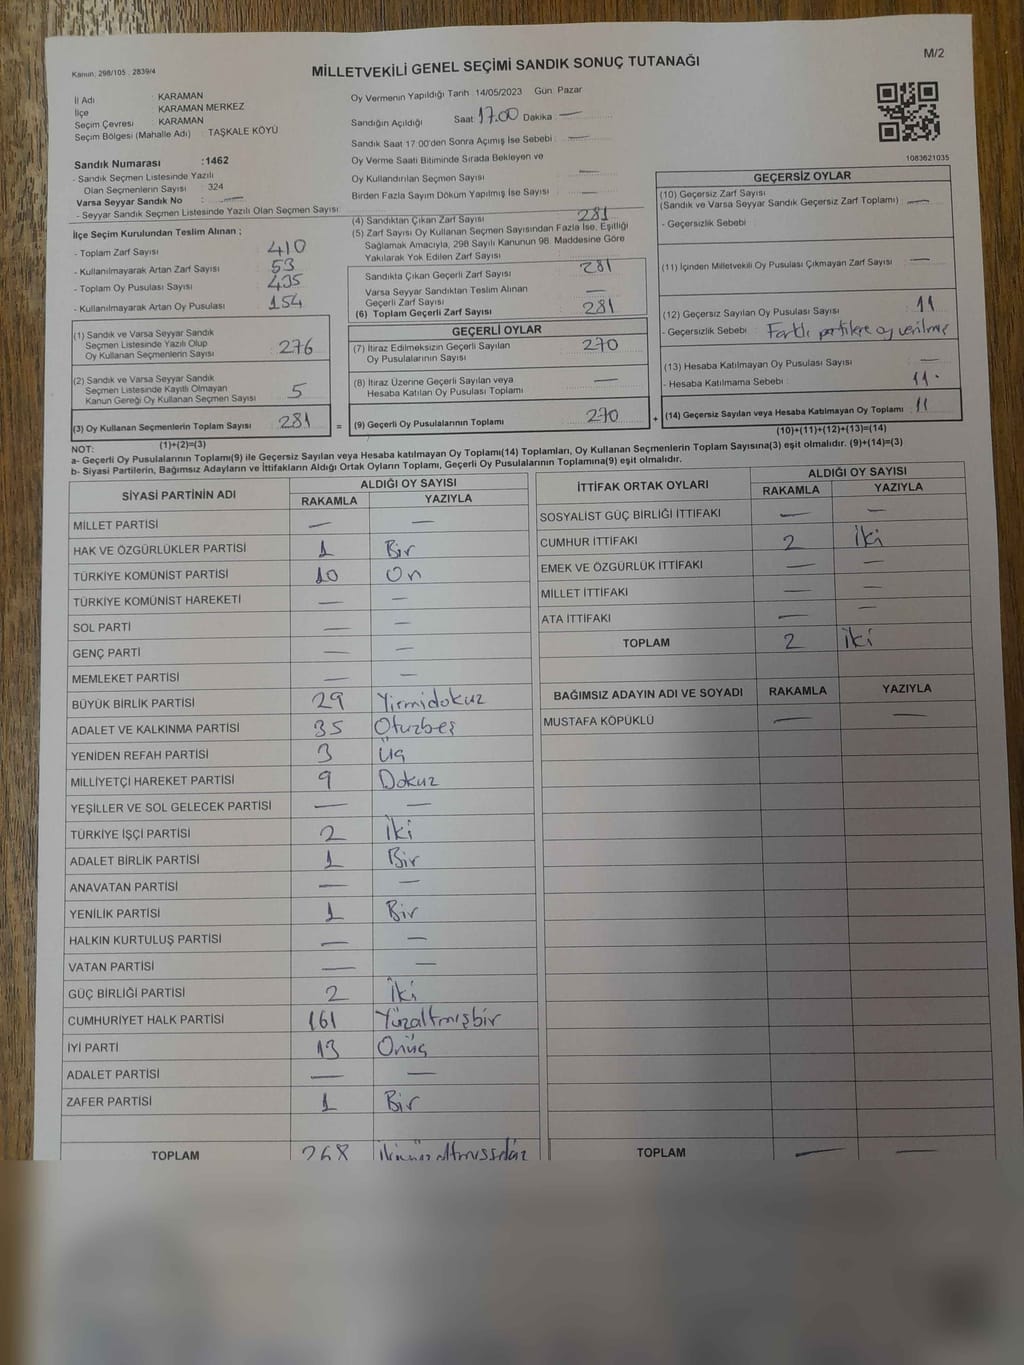 Kanun, 298/105 , 2839/4
MİLLETVEKİLİ GENEL SEÇİMİ SANDIK SONUÇ TUTANAĞI
M/2
İl Adı : KARAMAN
İlçe : KARAMAN MERKEZ
Seçim Çevresi : KARAMAN
Seçim Bölgesi (Mahalle Adı) : TAŞKALE KÖYÜ
Sandık Numarası :1462
- Sandık Seçmen Listesinde Yazılı
Olan Seçmenlerin Sayısı : 324
Varsa Seyyar Sandık No : —
- Seyyar Sandık Seçmen Listesinde Yazılı Olan Seçmen Sayısı:
İlçe Seçim Kurulundan Teslim Alınan ;
- Toplam Zarf Sayısı : 410
- Kullanılmayarak Artan Zarf Sayısı : 53
- Toplam Oy Pusulası Sayısı : 435
- Kullanılmayarak Artan Oy Pusulası : 154
(1) Sandık ve Varsa Seyyar Sandık
Seçmen Listesinde Yazılı Olup
Oy Kullanan Seçmenlerin Sayısı : 276
(2) Sandık ve Varsa Seyyar Sandık
Seçmen Listesinde Kayıtlı Olmayan
Kanun Gereği Oy Kullanan Seçmen Sayısı : 5
(3) Oy Kullanan Seçmenlerin Toplam Sayısı : 281
(1)+(2)=(3)
Oy Vermenin Yapıldığı Tarih :14/05/2023 Gün: Pazar
Sandığın Açıldığı Saat: 17.00 Dakika : —
Sandık Saat 17:00'den Sonra Açımış İse Sebebi : —
Oy Verme Saati Bitiminde Sırada Bekleyen ve
Oy Kullandırılan Seçmen Sayısı : —
Birden Fazla Sayım Döküm Yapılmış İse Sayısı : —
(4) Sandıktan Çıkan Zarf Sayısı : 281
(5) Zarf Sayısı Oy Kullanan Seçmen Sayısından Fazla İse, Eşitliği
Sağlamak Amacıyla, 298 Sayılı Kanunun 98. Maddesine Göre
Yakılarak Yok Edilen Zarf Sayısı :
Sandıkta Çıkan Geçerli Zarf Sayısı : 281
Varsa Seyyar Sandıktan Teslim Alınan
Geçerli Zarf Sayısı : —
(6) Toplam Geçerli Zarf Sayısı : 281
GEÇERLİ OYLAR
(7) İtiraz Edilmeksizin Geçerli Sayılan
Oy Pusulalarının Sayısı : 270
(8) İtiraz Üzerine Geçerli Sayılan veya
Hesaba Katılan Oy Pusulası Toplamı : —
= (9) Geçerli Oy Pusulalarının Toplamı : 270 +
1083621035
GEÇERSİZ OYLAR
(10) Geçersiz Zarf Sayısı
(Sandık ve Varsa Seyyar Sandık Geçersiz Zarf Toplamı) : —
- Geçersizlik Sebebi :
(11) İçinden Milletvekili Oy Pusulası Çıkmayan Zarf Sayısı : —
(12) Geçersiz Sayılan Oy Pusulası Sayısı : 11
- Geçersizlik Sebebi : Farklı partilere oy verilmiş
(13) Hesaba Katılmayan Oy Pusulası Sayısı : —
- Hesaba Katılmama Sebebi : 11.
(14) Geçersiz Sayılan veya Hesaba Katılmayan Oy Toplamı : 11
(10)+(11)+(12)+(13)=(14)
NOT:
a- Geçerli Oy Pusulalarının Toplamı(9) ile Geçersiz Sayılan veya Hesaba katılmayan Oy Toplamı(14) Toplamları, Oy Kullanan Seçmenlerin Toplam Sayısına(3) eşit olmalıdır. (9)+(14)=(3)
b- Siyasi Partilerin, Bağımsız Adayların ve İttifakların Aldığı Ortak Oyların Toplamı, Geçerli Oy Pusulalarının Toplamına(9) eşit olmalıdır.
SİYASİ PARTİNİN ADI ALDIĞI OY SAYISI
RAKAMLA YAZIYLA
MİLLET PARTİSİ — —
HAK VE ÖZGÜRLÜKLER PARTİSİ 1 Bir
TÜRKİYE KOMÜNİST PARTİSİ 10 On
TÜRKİYE KOMÜNİST HAREKETİ — —
SOL PARTİ — —
GENÇ PARTİ — —
MEMLEKET PARTİSİ — —
BÜYÜK BİRLİK PARTİSİ 29 Yirmidokuz
ADALET VE KALKINMA PARTİSİ 35 Otuzbeş
YENİDEN REFAH PARTİSİ 3 Üç
MİLLİYETÇİ HAREKET PARTİSİ 9 Dokuz
YEŞİLLER VE SOL GELECEK PARTİSİ — —
TÜRKİYE İŞÇİ PARTİSİ 2 İki
ADALET BİRLİK PARTİSİ 1 Bir
ANAVATAN PARTİSİ — —
YENİLİK PARTİSİ 1 Bir
HALKIN KURTULUŞ PARTİSİ — —
VATAN PARTİSİ — —
GÜÇ BİRLİĞİ PARTİSİ 2 İki
CUMHURİYET HALK PARTİSİ 161 Yüzaltmışbir
İYİ PARTİ 13 Onüç
ADALET PARTİSİ — —
ZAFER PARTİSİ 1 Bir
TOPLAM 268
İTTİFAK ORTAK OYLARI ALDIĞI OY SAYISI
RAKAMLA YAZIYLA
SOSYALİST GÜÇ BİRLİĞİ İTTİFAKI — —
CUMHUR İTTİFAKI 2 İki
EMEK VE ÖZGÜRLÜK İTTİFAKI — —
MİLLET İTTİFAKI — —
ATA İTTİFAKI — —
TOPLAM 2 İki
BAĞIMSIZ ADAYIN ADI VE SOYADI RAKAMLA YAZIYLA
MUSTAFA KÖPÜKLÜ — —
TOPLAM — —